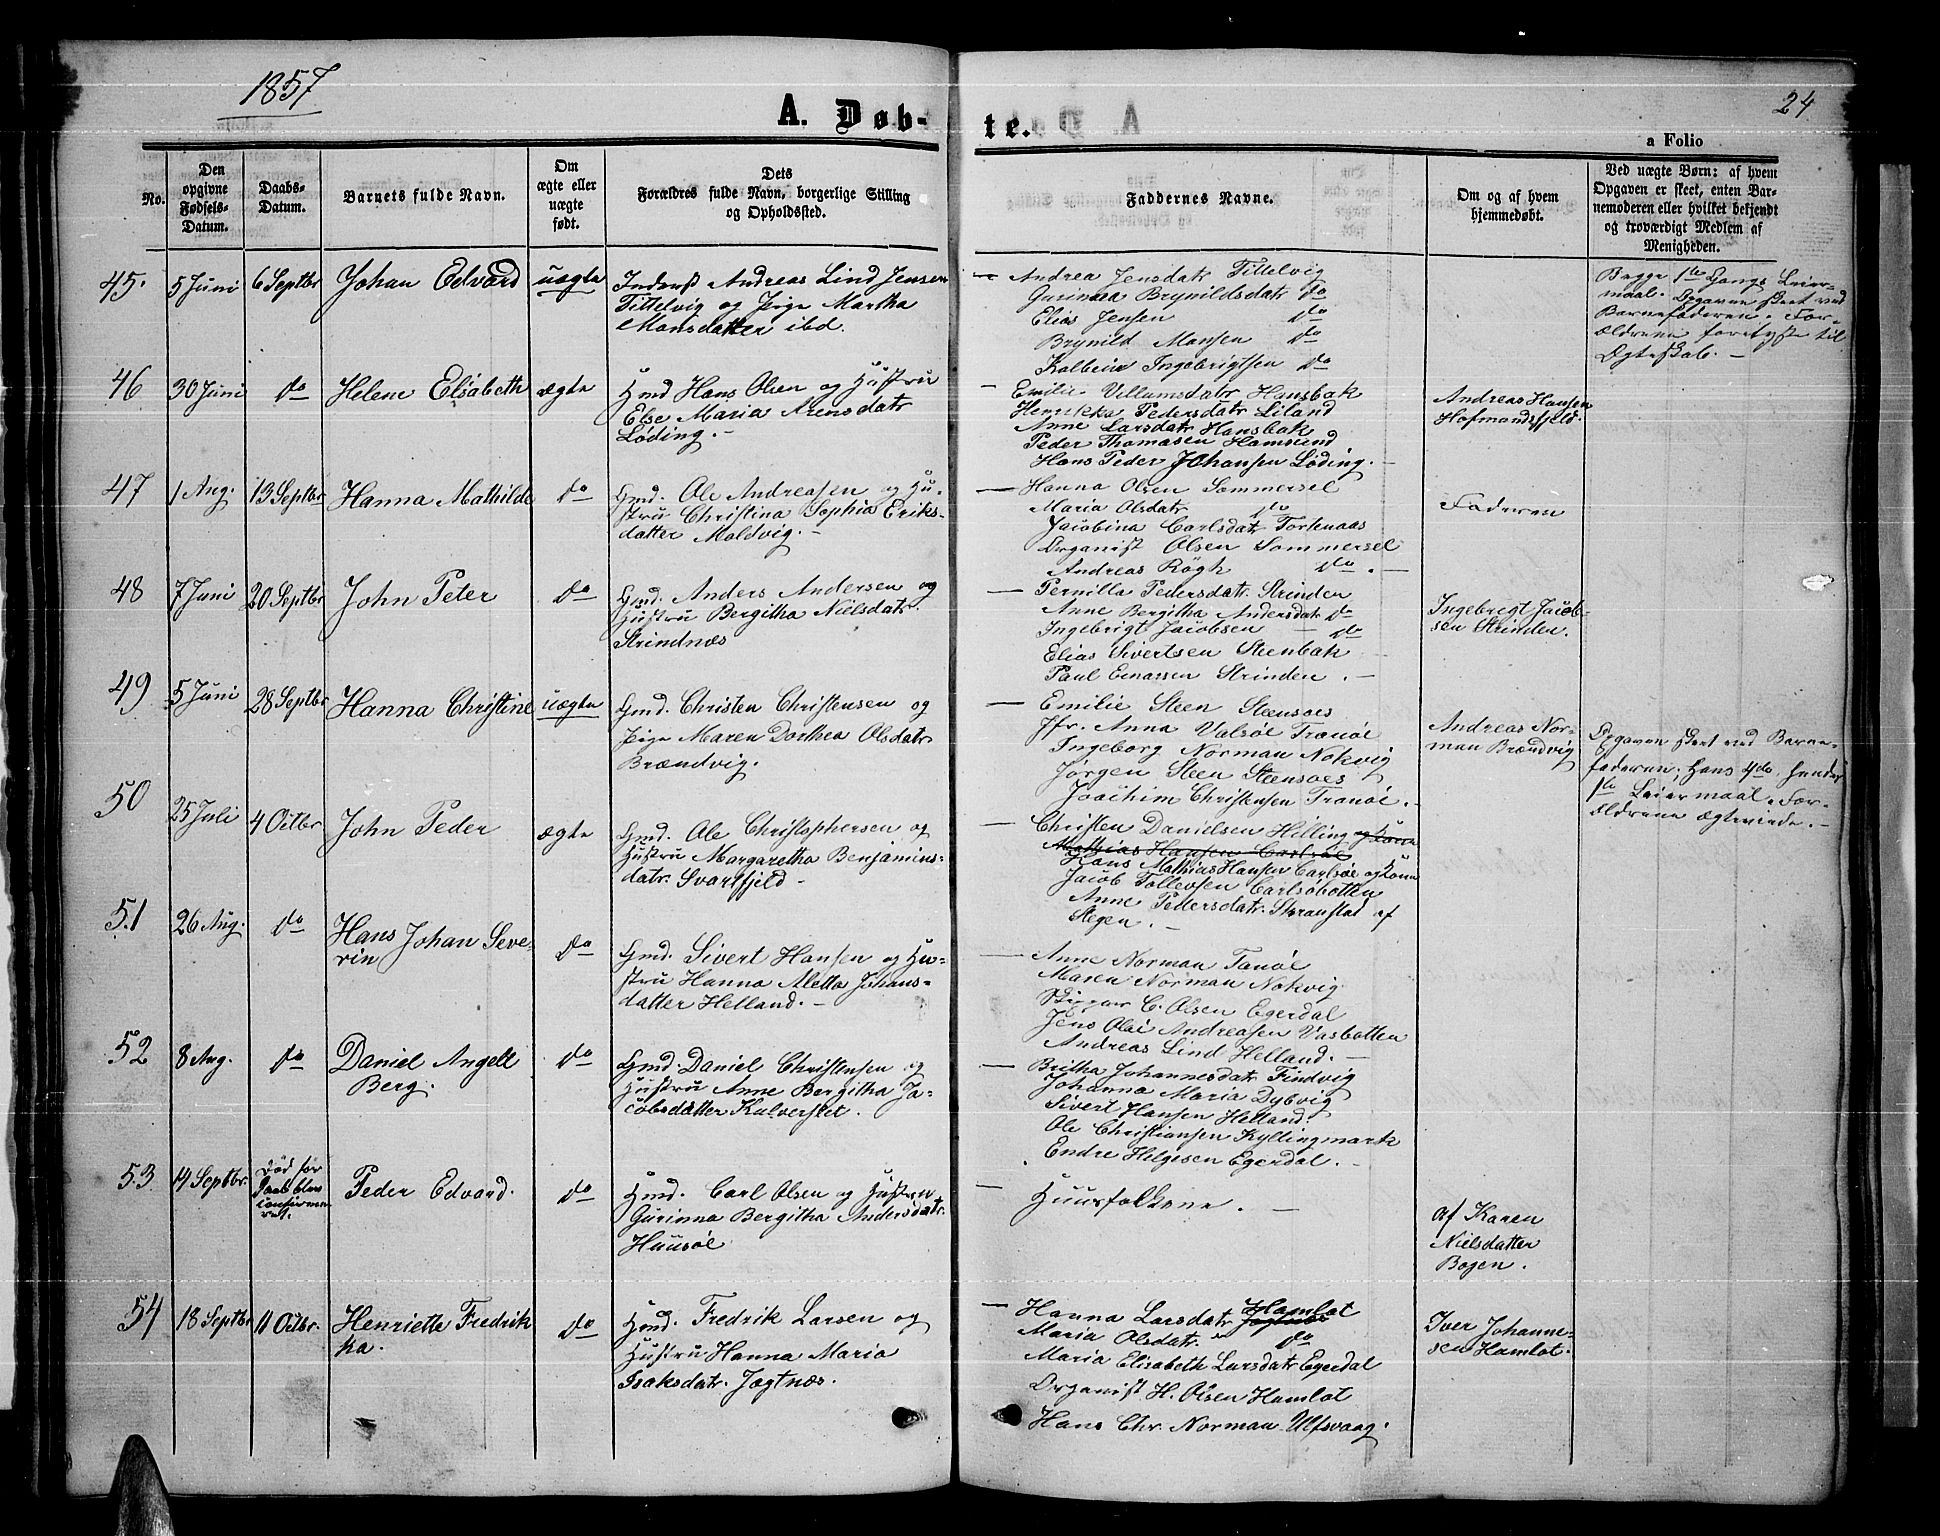 1857
24
A. Døb-
te.
a Folio
No.
Den
opgivne
Fødsels-
Datum.
Daabs-
Datum.
Barnets fulde Navn.
Om
ægte eller
uægte
født.
Dets
Forældres fulde Navn, borgerlige Stilling
og Opholdssted.
Faddernes Navne.
Om og af hvem
hjemmedøbt.
Ved uægte Børn: af hvem
Opgaven er skeet, enten Bar-
nemoderen eller hvilket bekjendt
og troværdigt Medlem af
Menigheden.
45.
5 Juni
6 Septbr
Johan Edvard
uægte
Inderst Andreas Lind Jensen
Tittelvig og Pige Martha
Monsdatter ibd.
— Andrea Jensdatr Tittelvig
Gurinna Brynildsdatr do
Elias Jensen do
Brynild Monsen do
Kolbein Ingebrigtsen do
Begge 1ste Gangs Leier-
maal. Opgaven skeet ved
Barnefaderen. For-
ældrene forlyste til
Ægteskab. —
46
30 Juni
do
Helene Elisabeth
ægte
Gmd Hans Olsen og Hustru
Else Maria Arensdatr
Løding. —
— Emilie Villumsdatr Hansbak
Henrikka Pedersdatr Liland
Anne Larsdatr Hansbak
Peder Thomasen Hamsund
Hans Peder Johansen Løding. —
Andreas Hansen
Hofmandsfjeld.
47
1 Aug.
13 Septbr
Hanna Mathilde
do
Gmd. Ole Andreasen og Hu-
stru Christina Sophia Eriks-
datter Moldvig. —
— Hanna Olsen Sommersel
Maria Olsdatr do
Jacobina Carlsdatr Tortenaas
Organist Olsen Sommersel
Andreas Røgh do. —
Faderen
48
7 Juni
20 Septbr
John Peter
do
Gmd. Anders Andersen og
Hustru Bergitha Nielsdatr.
Strindnæs
— Pernilla Pedersdatr. Strinden
Anne Bergitha Andersdatr do
Ingebrigt Jacobsen — do
Elias Sivertsen Steenbak
Paul Enassen Strinden. —
Ingebrigt Jacob-
sen Strinden.
49
5 Juni
28 Septbr
Hanna Christine
uægte
Gmd. Christen Christensen og
Pige Maren Dorthea Olsdatr.
Brændvig.
— Emilie Steen Steensoes
Jfr. Anna Valsøe Tranøe
Ingeborg Norman Nokvig
Jørgen Steen Steensoes
Joachim Christensen Tranøe. —
Andreas Nor-
man Brændvig
Opgaven skeet ved Barne-
faderen; hans 4de, hendes
1ste Leiermaal. For-
ældrene ægteviede. —
50
25 Juli
4 Octbr
John Peder
ægte
Gmd. Ole Christophersen og
Hustru Margaretha Benjamins-
datr. Svartfjeld —
— Christen Danielsen Hilling og Kone
Mathias Hansen Carlsøe
Hans Mathias Hansen Carlsøe og Kone
Jacob Tollevsen Carlsøbotten
Anne Pettersdatr. Skranstad af
Stegen. —
51
26 Aug.
do
Hans Johan Seve-
rin
do
Gmd. Sivert Hansen og Hu-
stru Hanna Aletta Johans-
datter Helland. —
— Anne Norman Tanøe
Maren Norman Nokvig
C. Olsen Egerdal
Jens Olai Andreasen Vasbotten
Andreas Lind Helland. —
52
8 Aug.
do
Daniel Angell
Berg.
do
Gmd. Daniel Christensen og
Hustru Anne Bergitha Ja-
cobsdatter Kalverslet.
— Britha Johannesdatr Findvig
Johanna Maria Dybvig
Sivert Hansen Helland.
Ole Christiansen Kyllingmark
Endre Helgesen Egerdal. —
53
14 Septbr.
Død før
Daab blev
confirme-
ret.
Peder Edvard.
do
Gmd. Carl Olsen og Hustru
Gurinna Bergitha Andersdatr.
Huusøe
— Huusfolkene. —
af Karen
Nielsdatter
Bogen.
54
18 Septbr
11 Octbr.
Henriette Fredrik
ka.
do
Gmd. Fredrik Larsen og
Hustru Hanna Maria
Isaksdatr. Jagtnæs.
— Hanna Larsdatr Hamlot
Maria Olsdatr. do
Maria Elisabeth Larsdatr Egerdal
Organist H. Olsen Hamlot
Hans Chr. Norman Ulfsvaag.
Iver Johanne-
sen Hamlot.